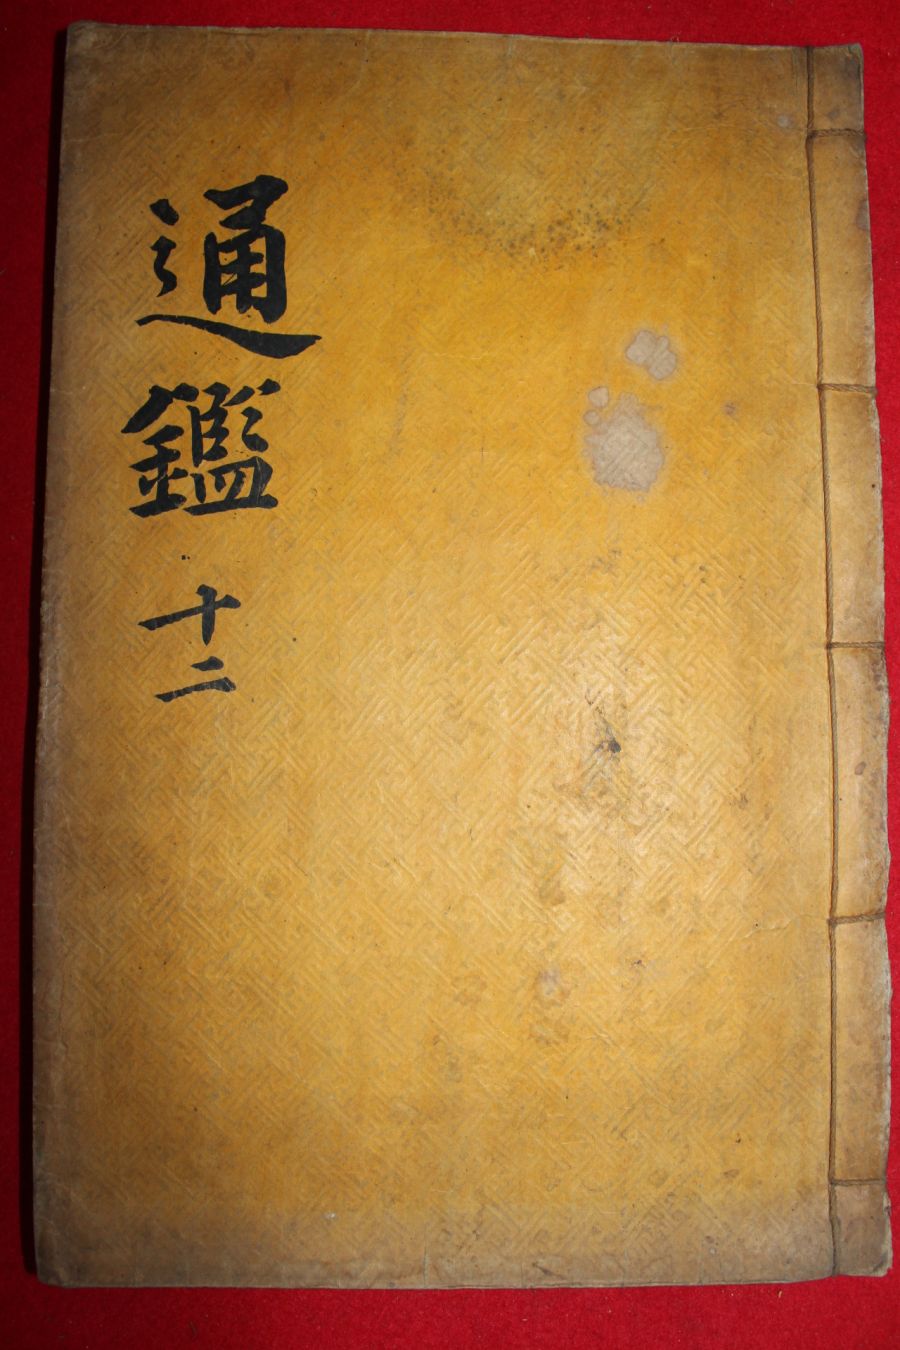 通鑑 十二